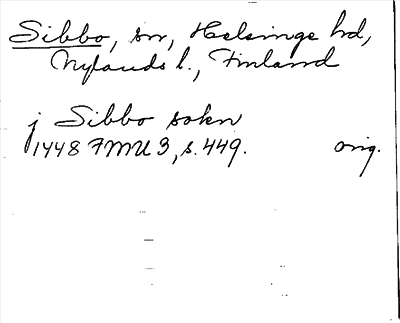 Sibbo, sn, Helsinge hd,
Nylands l., Finland
j Sibbo sokn
1448 FMU 3, s. 449. orig.